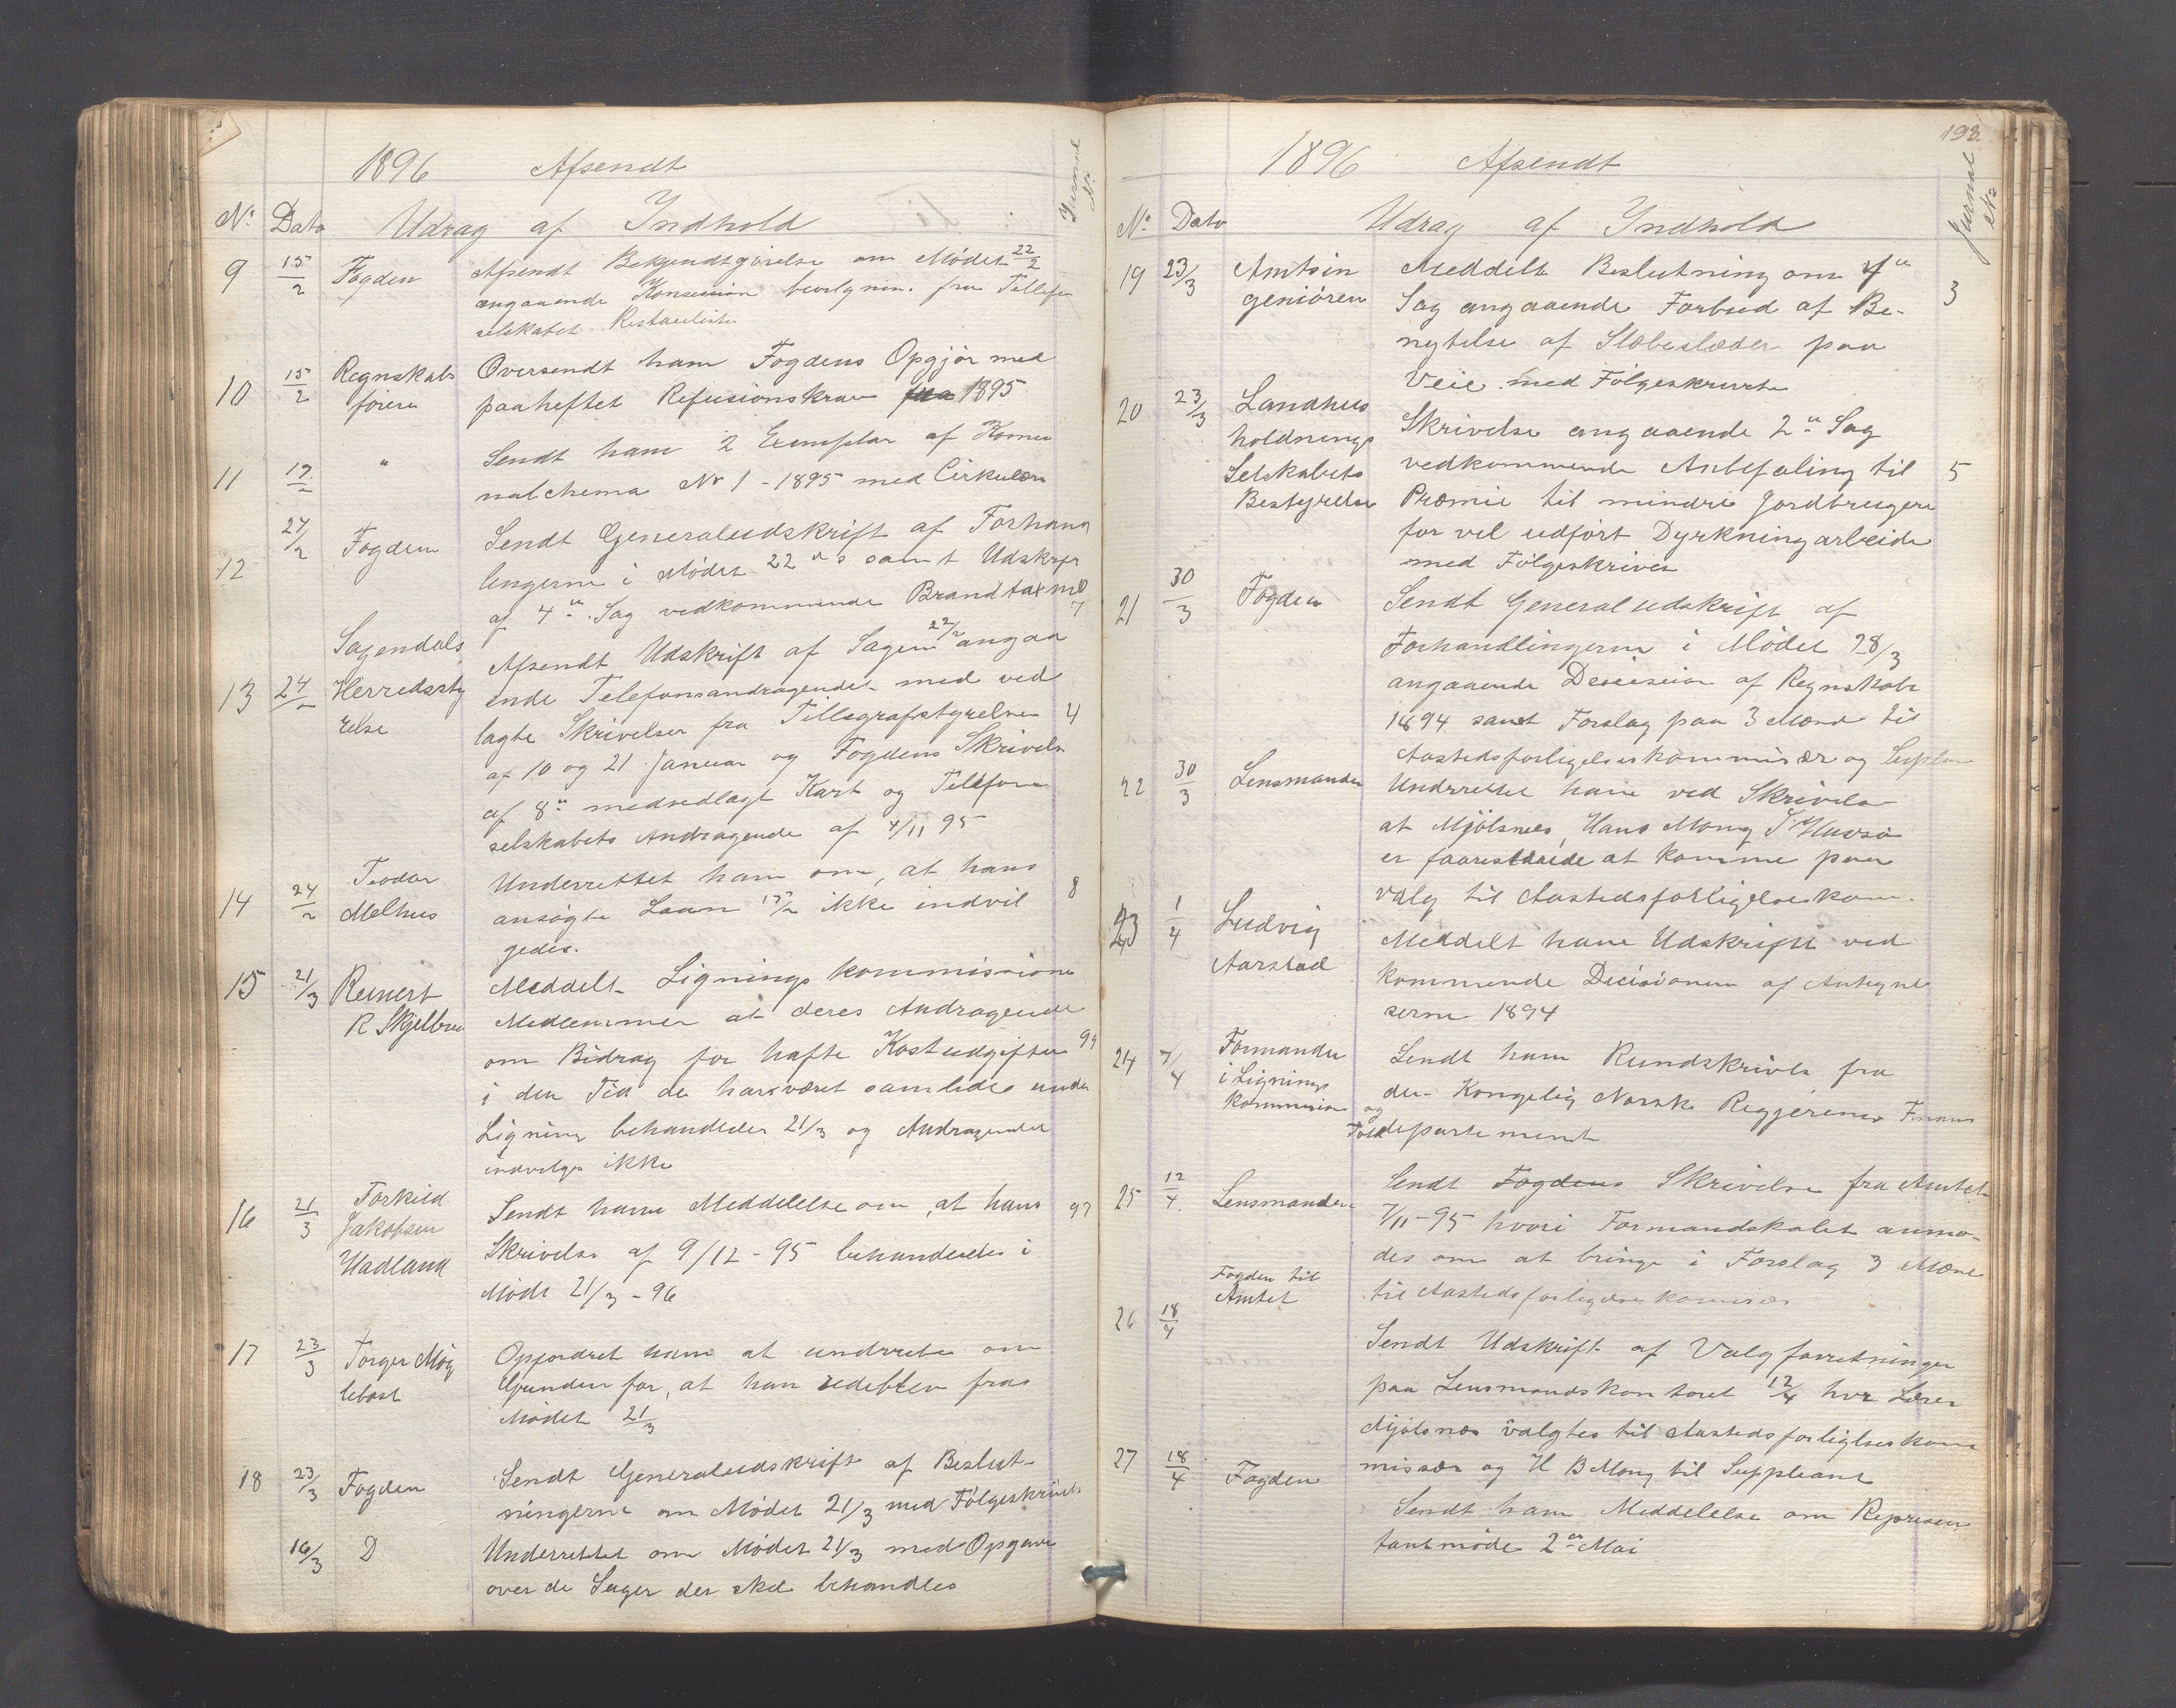 1896 Afsendt
Journal No
No Dato Udrag af Indhold
9 15/2 Fogden Afsendt Bekjendtgjørelse om Mødet 22/2
angaaende Konsession fra Tellefon
selskabet Restanceliste
10 15/2 Regnskabs Oversendt ham Fogdens Opgjør med
fører paaheftet Refusionskrav fra 1895
11 19/2 " Sendt ham 2 Exemplar af Komu
nalchema No 1 - 1895 med Cirkulære
12 24/2 Fogden Sendt Generaludskrift af Forhand
lingerne i Mødet 22 ds samt Udskrift
af 4de Sag vedkommende Brandtaxmd 7
13 24/2 Sogendals Afsendt Udskrift af Sagen 22/2 angaa
Herredssty ende Telefonsandragendet med ved
relse lagte Skrivelser fra Tellegrafstyrelsen 4
af 10 og 21 Januar og Fogdens Skrivelse
af 8de medvedlagt Kart og Telefon
selskabets Andragende af 4/11 95
14 24/2 Teodor Underrettet ham om, at hans 8
Melhus ansøgte Laan 15/2 ikke indvil
gedes.
15 21/3 Reinert Meddelt Lignings kommissionens
R Skjelbred Medlemmer at deres Andragende
om Bidrag for hafte Kostudgifter 94
i den Tid de har været samlede under
Ligning behandledes 21/3 og Andragendet
indvilges ikke
16 21/3 Torkild Sendt ham Meddelelse om, at hans 97
Jakobsen Skrivelse af 9/12 - 95 behandledes i
Hadland Møde 21/3 - 96
17 23/3 Torger Møg Opfordret ham at underrette om
lebost Grunden for, at han udeblev fra
Mødet 21/3
18 23/3 Fogden Sendt Generaludskrift af Beslut-
ningerne om Mødet 21/3 med Følgeskrivelse
16/3 D Underrettet om Mødet 21/3 med Opgave
over de Sager der skal behandles
193.
1896 Afsendt
Jurnal No
No Dato Udrag af Indhold
19 23/3 Amtsin Meddelt Beslutning om 4de
geniøren Sag angaaende Forbud af Be- 3
nytelse af Slæbeslæder paa
Veie med Følgeskrivelse
20 23/3 Landhus Skrivelse angaaende 2den Sag
holdnings vedkommende Anbefaling til 5
Selskabets Præmie til mindre Jordbrugere
Bestyrelse for vel udført Dyrkningarbeide
med Følgeskrivelse
21 30/3 Fogden Sendt Generaludskrift af
Forhandlingerne i Mødet 28/3
angaaende Desission af Regnskabet
1894 samt Forslag paa 3 Mænd til
Aastedsforligelseskommisær og Suplean
22 30/3 Lensmanden Underrettet ham ved Skrivelse
at Mjølsnes, Hans Mong
er foreslaaede at komme paa
valg til Aastedsforligelseskom.
23 1/4 Ludvig Meddelt ham Udskrift ved
Aarstad kommende Decisionen af Antegnel
serne 1894
24 7/4 Formanden Sendt ham Rundskrivelse fra
i Lignings den Kongelig Norske Regjerings Finans
kommision og Told departement
25 12/4 Lensmanden Sendt Fogdens Skrivelse fra Amtet
7/11-95 hvori Formandskabet anmo-
des om at bringe i Forslag 3 Mænd
til Aastedsforligelses kommisær
26 18/4 Fogden til
Amtet
Sendt Udskrift af Valgforretningen
paa Lensmandskontoret 12/4 hvor Lærer
Mjølsnæs valgtes til Aastedsforligelseskom
missær og H B Mong til Suppleant
27 18/4 Fogden Sendt ham Meddelelse om Represen
tantmøde 2den Mai